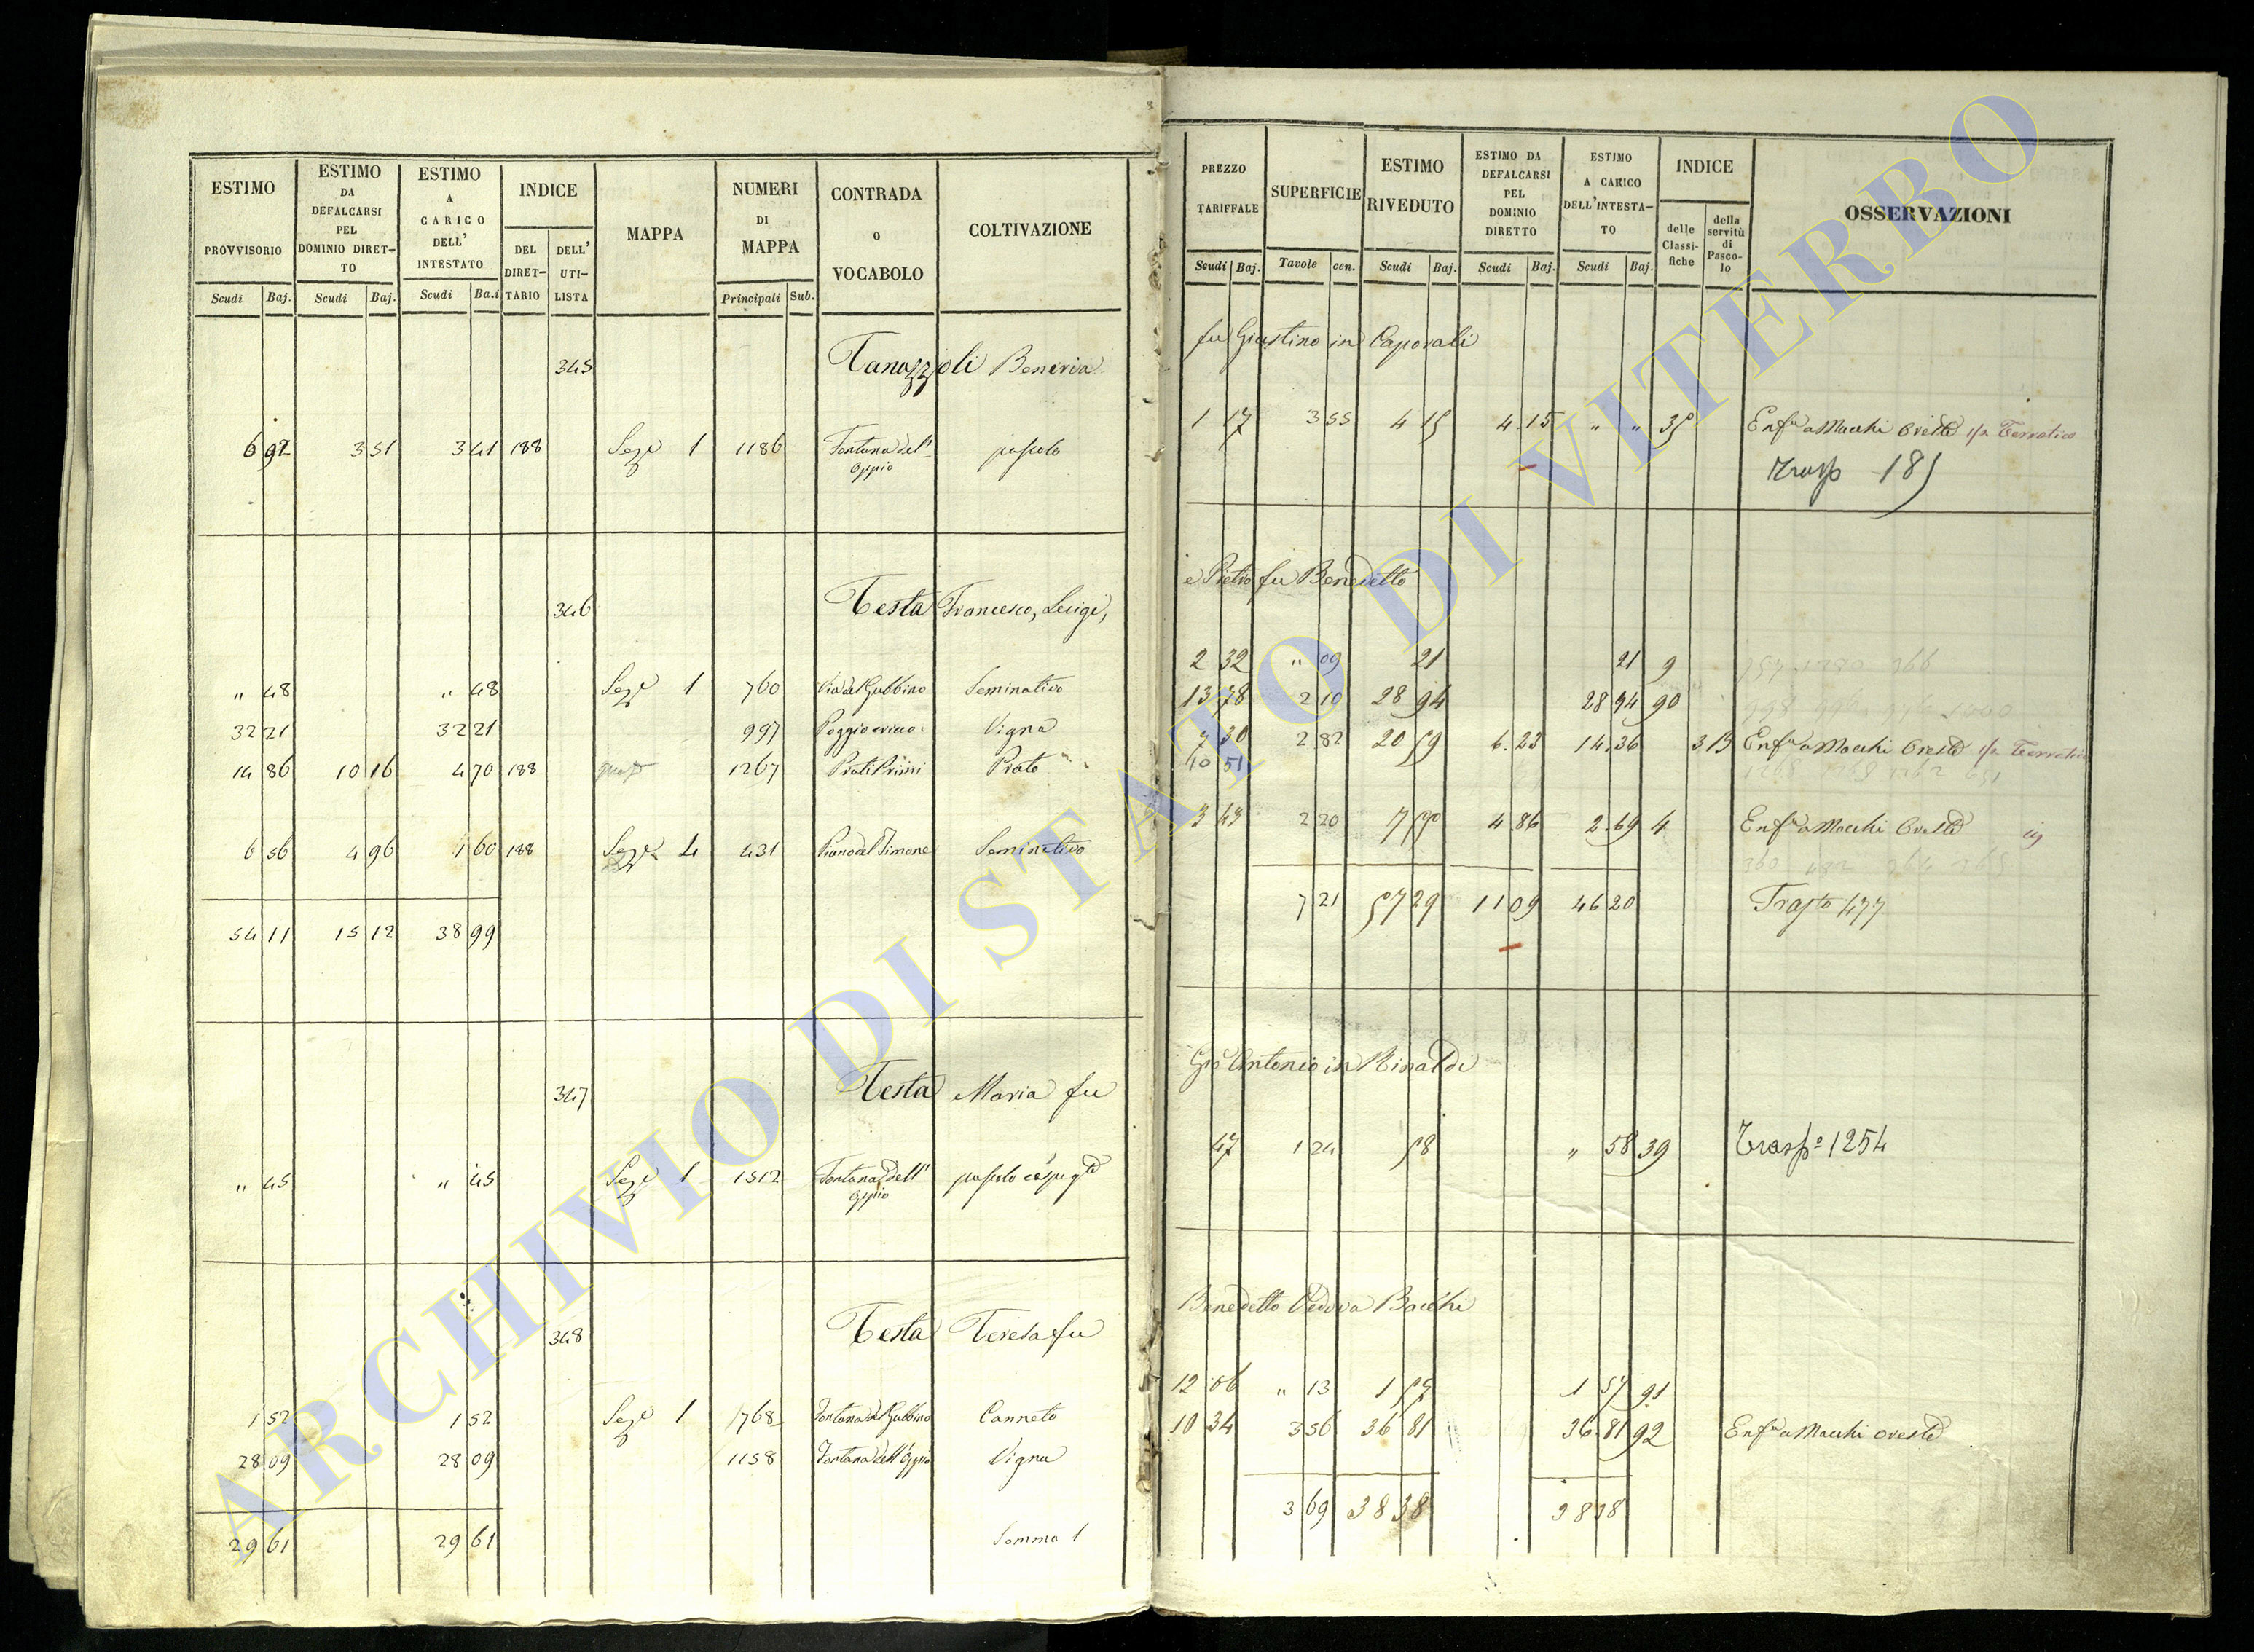 ESTIMO PROVVISORIO
ESTIMO DA DEFALCARSI PEL DOMINIO DIRET-TO
ESTIMO A CARICO DELL' INTESTATO
INDICE
DEL DIRET-TARIO
DELL' UTI-LISTA
MAPPA
NUMERI DI MAPPA
CONTRADA o VOCABOLO
COLTIVAZIONE
Scudi Baj. Scudi Baj. Scudi Ba.i Principali Sub.
345 Tanuzzoli
6 92 3 51 3 41 188 Sez.e 1 1186 Fontana dell' Oppio pascolo
346 Testa Francesco, Luigi,
" 48 " 48 Sez.e 1 760 Via del Gubbino Seminativo
32 21 32 21 997 Vigna
14 86 10 16 4 70 188 1267 Prati Primi Prato
6 56 4 96 1 60 188 Sez.e 4 431 Piano del Simone Seminativo
54 11 15 12 38 99
347 Testa Maria fu
" 45 " 45 Sez.e 1 1512 Fontana dell' Oppio pascolo cespug.to
348 Testa Teresa fu
1 52 1 52 Sez.e 1 768 Fontana del Gubbino Canneto
28 09 28 09 1158 Fontana dell'Oppio Vigna
29 61 29 61 Somma 1
PREZZO TARIFFALE
SUPERFICIE
ESTIMO RIVEDUTO
ESTIMO DA DEFALCARSI PEL DOMINIO DIRETTO
ESTIMO A CARICO DELL'INTESTA-TO
INDICE
delle Classi-fiche
della servitù di Pasco-lo
OSSERVAZIONI
Scudi Baj. Tavole cen. Scudi Baj. Scudi Baj. Scudi Baj.
fu Giustino in Caporali
1 17 3 55 4 15 4.15 " " 35 Enf.a a Macchi Oreste Terratico
Trasp 185
e Pietro fu Benedetto
2 32 " 09 21 21 9
13 78 2 10 28 94 28 94 90
7 30 2 82 20 59 6.23 14.36 3 13 Enf.a a Macchi Oreste Terratico
10 51
3 43 2 20 7 50 4.86 2.69 4 Enf.a a Macchi Oreste
7 21 57 29 11 09 46 20 Trasp.to 477
Gio Antonio in Rinaldi
47 1 24 58 " 58 39 Trasp.o 1254
Benedetto Vedova Bacchi
12 06 " 13 1 57 1 57 91
10 34 3 56 36 81 36.81 92 Enf.a a Macchi Oreste
3 69 38 38 38 38
ARCHIVIO DI STATO DI VITERBO